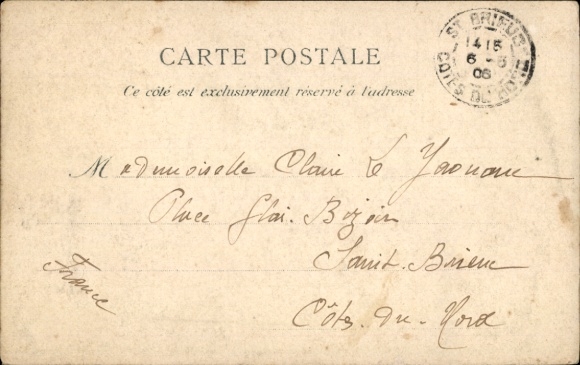 CARTE POSTALE
Ce côté est exclusivement réservé à l'adresse
ST BRIEUC
14 15
6 - 5
06
COTES DU NORD
Mademoiselle Claire Le
Place
Saint-Brieuc
France
Côtes-du-Nord